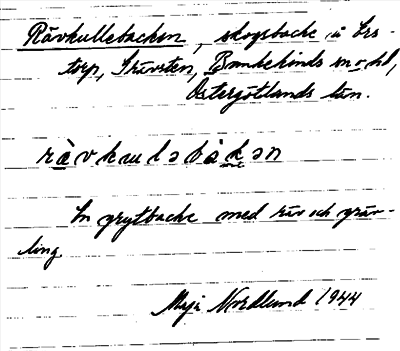 Rävkullebacken, skogsbacke i Ers-
torp, Skärsten, Bankekinds sn o hd,
Östergötlands län.
rävkauləbakən
En grytbacke med räv och gräv-
ling.
Maja Nordlund 1944